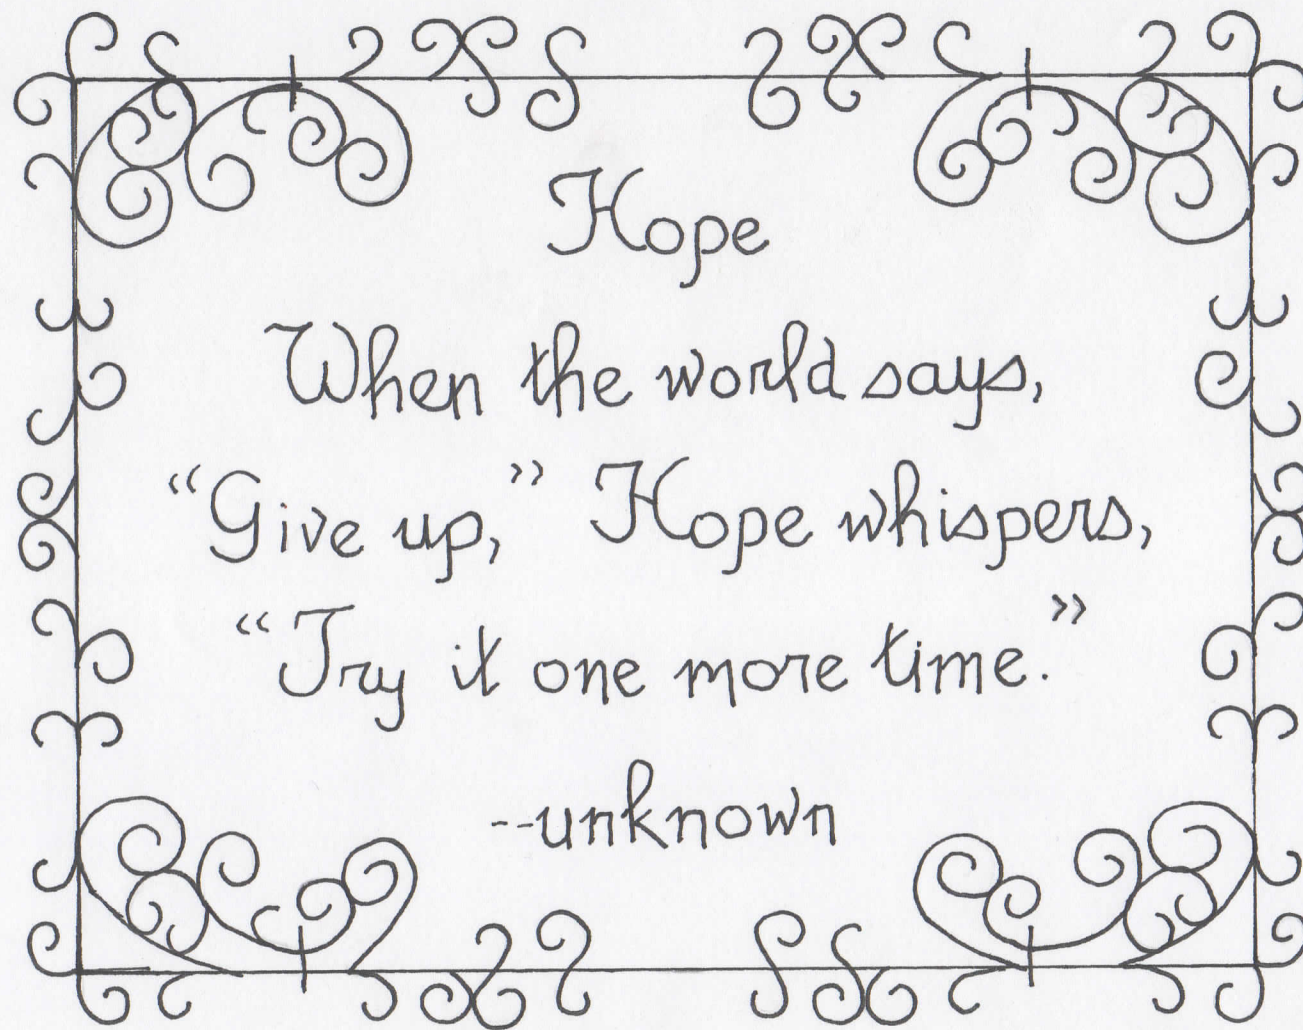 Hope
When the world says,
“Give up,” Hope whispers,
“Try it one more time.”
--unknown